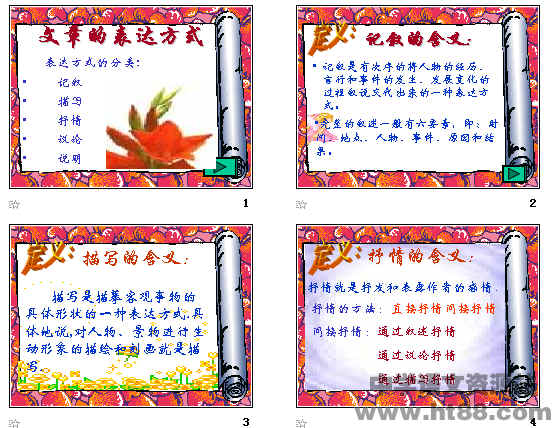 文章的表达方式
表达方式的分类:
• 记叙
• 描写
• 抒情
• 议论
• 说明
1
定义:
记叙的含义:
• 记叙是有次序的将人物的经历、
言行和事件的发生、发展变化的
过程叙说交代出来的一种表达方
式。
•完整的叙述一般有六要素,即:时
间、地点、人物、事件、原因和结
果。
2
定义:
描写的含义:
描写是描摹客观事物的
具体形状的一种表达方式.具
体地说,对人物、景物进行生
动形象的描绘和刻画就是描
写.
3
定义:
抒情的含义:
抒情就是抒发和表露作者的感情.
抒情的方法: 直接抒情 间接抒情
间接抒情: 通过叙述抒情
通过议论抒情
通过描写抒情
4
www.ht88.com